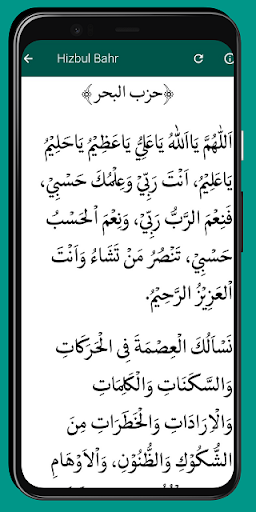 Hizbul Bahr
﴿حزب البحر﴾
اَللّٰهُمَّ يَااَللّٰهُ يَاعَلِيُّ يَاعَظِيْمُ يَاحَلِيْمُ
يَاعَلِيْمُ، اَنْتَ رَبِّيْ وَعِلْمُكَ حَسْبِيْ،
فَنِعْمَ الرَّبُّ رَبِّيْ، وَنِعْمَ اْلحَسْبُ
حَسْبِيْ، تَنْصُرُ مَنْ تَشَاءُ وَاَنْتَ
اْلعَزِيْزُ الرَّحِيْمُ.
نَسْاَلُكَ اْلعِصْمَةَ فِى اْلحَرَكَاتِ
وَالسَّكَنَاتِ وَاْلكَلِمَاتِ
وَاْلاِرَادَاتِ وَاْلخَطَرَاتِ مِنَ
الشُّكُوْكِ وَالظُّنُوْنِ، وَاْلاَوْهَامِ